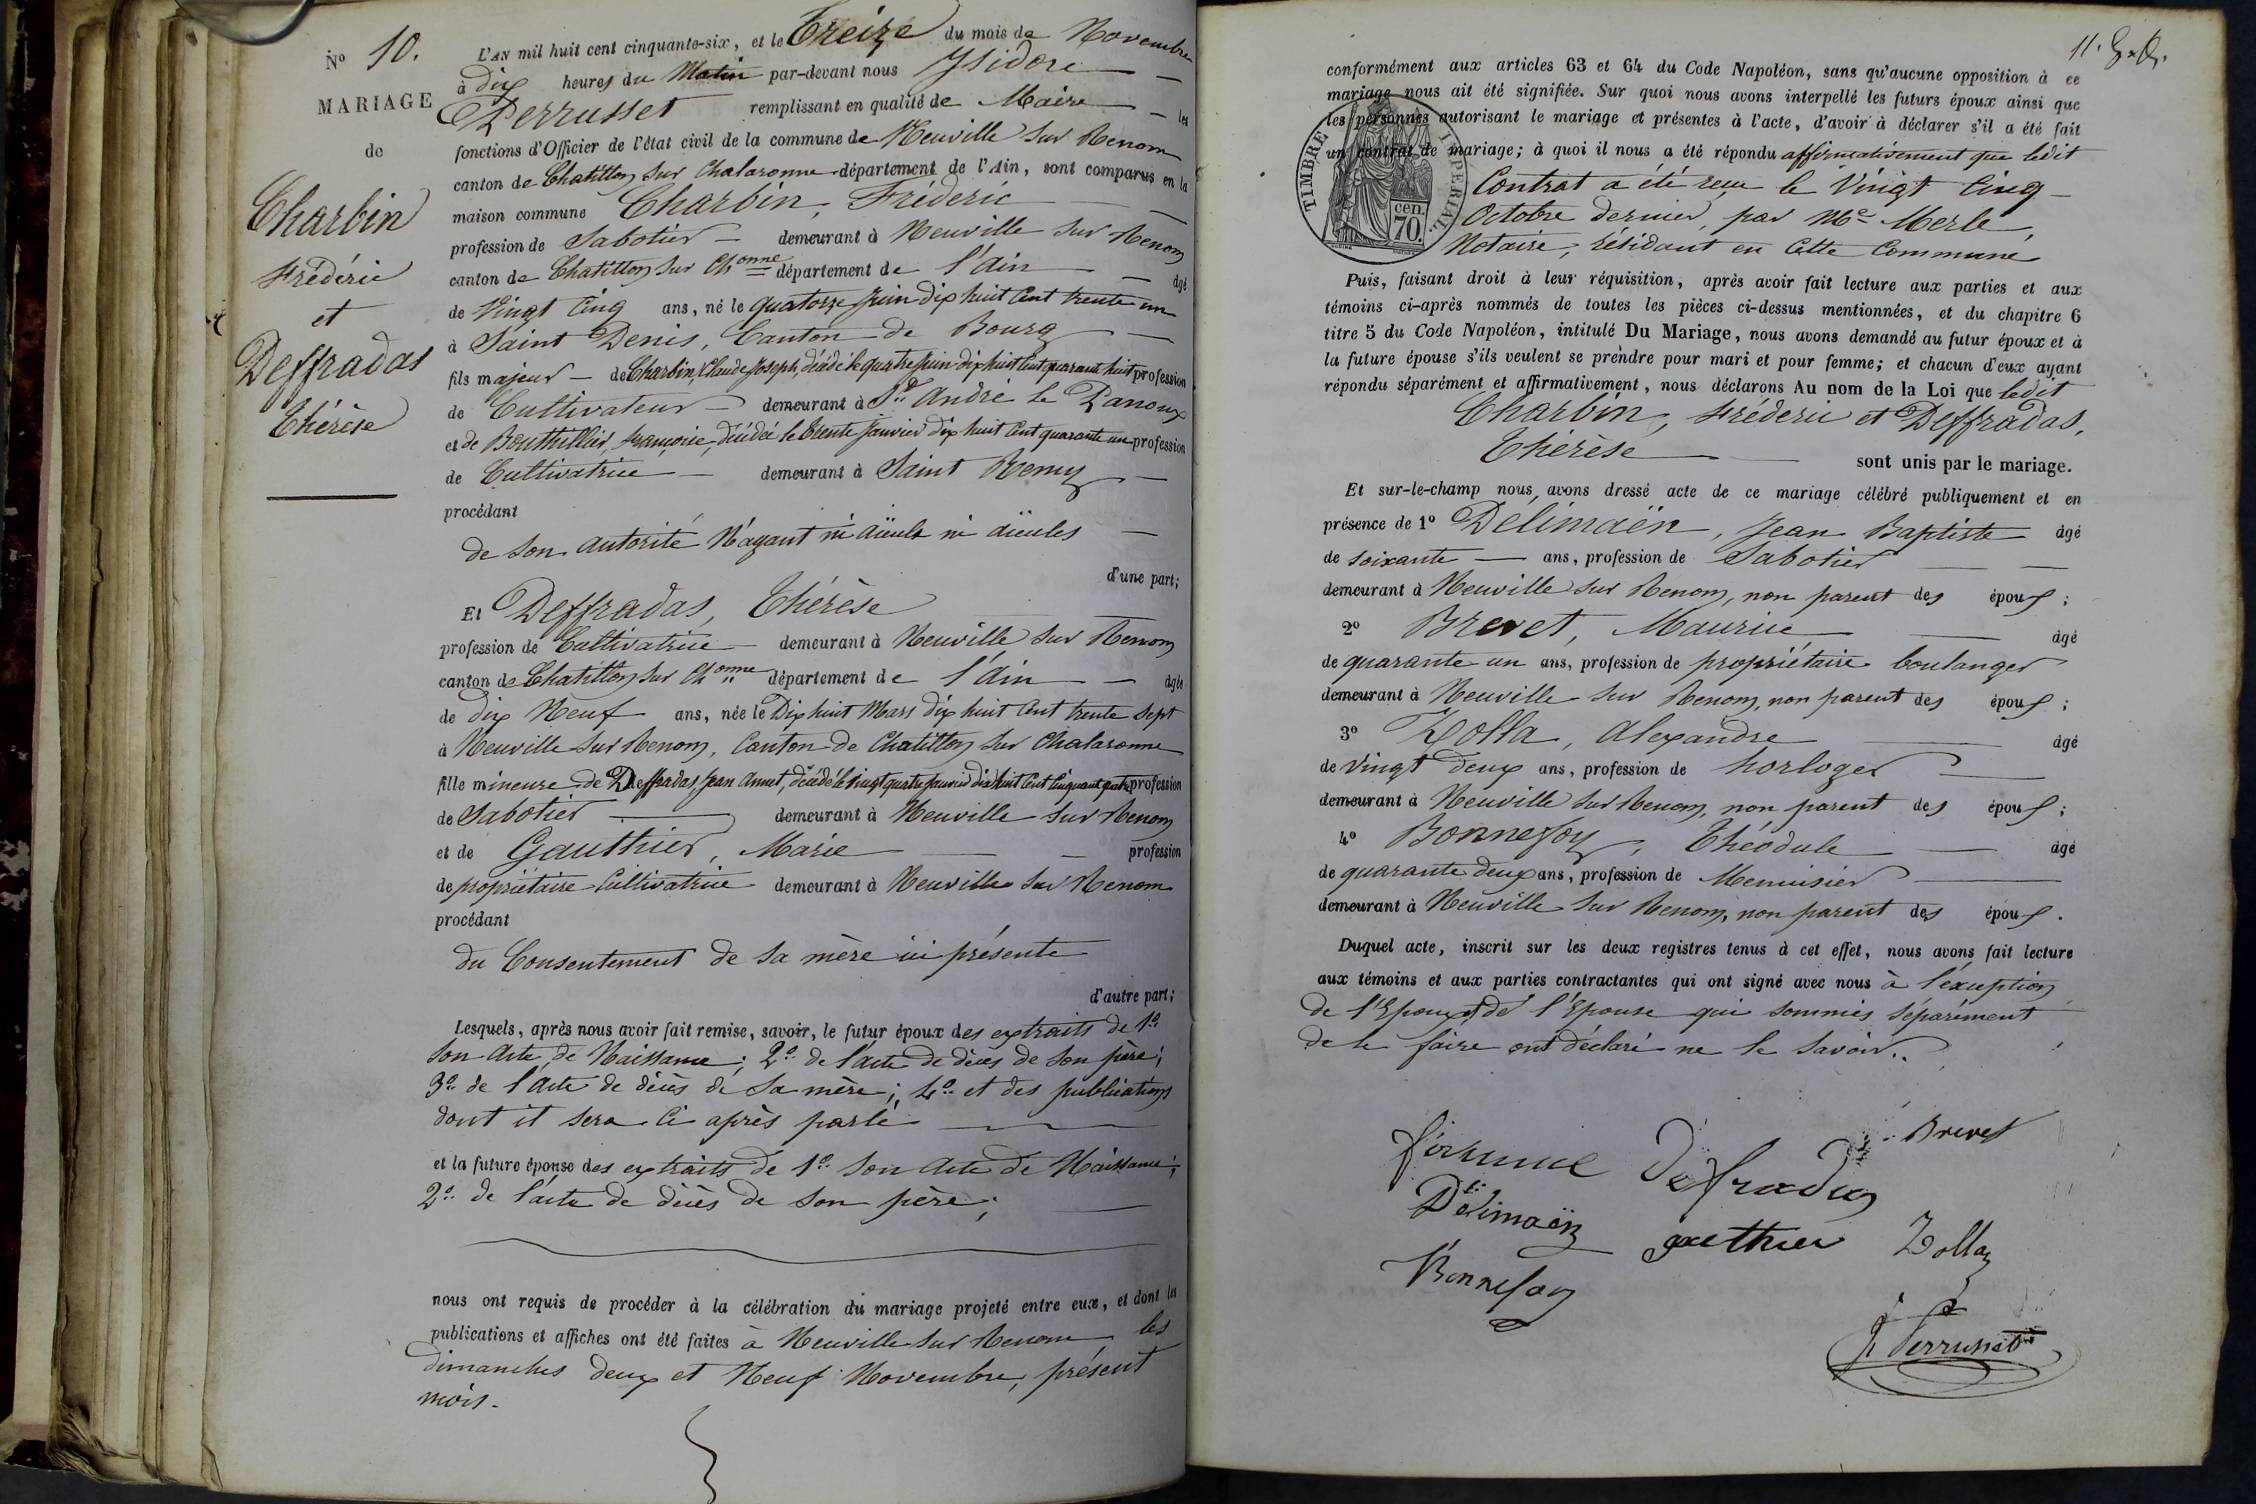 N° 10.
MARIAGE
de
Charbin
Frédéric
et
Deffradas
Thérèse
L'AN mil huit cent cinquante-six, et le Treize du mois de Novembre
à dix heures du Matin par-devant nous Ysidore
Perrusset remplissant en qualité de Maire les
fonctions d'Officier de l'état civil de la commune de Neuville sur Renom
canton de Chatillon sur Chalaronne département de l'Ain, sont comparus en la
maison commune Charbin, Fréderic
profession de Sabotier demeurant à Neuville sur Renom
canton de Chatillon sur Chonne département de l'Ain âgé
de Vingt Cinq ans, né le quatorze Juin dix huit Cent trente un
à Saint Denis, Canton de Bourg
fils majeur de Charbin, Claude Joseph, décédé le quatre Juin dix huit Cent quarante huit profession
de Cultivateur demeurant à St André le Panoux
et de Bouthillier, françoise, décédée le trente Janvier dix huit Cent quarante un profession
de Cultivatrice demeurant à Saint Remy
procédant
de son autorité N'ayant ni aïeuls ni aïeules
d'une part;
Et Deffradas, Thérèse
profession de Cultivatrice demeurant à Neuville sur Renom
canton de Chatillon sur Chonne département de l'Ain âgée
de dix Neuf ans, née le Dix huit Mars dix huit Cent trente sept
à Neuville sur Renom, Canton de Chatillon sur Chalaronne
fille mineure de Deffradas, Jean Annet, décédé le vingt quatre Janvier dix huit Cent Cinquante quatre profession
de Sabotier demeurant à Neuville sur Renom
et de Gauthier, Marie profession
de propriétaire Cultivatrice demeurant à Neuville sur Renom
procédant
du Consentement de sa mère ici présente
d'autre part;
Lesquels, après nous avoir fait remise, savoir, le futur époux des extraits de 1°
son Acte de Naissance; 2° de l'acte de décès de son père;
3° de l'acte de décès de sa mère; 4° et des publications
dont il sera Ci après parlé
et la future épouse des extraits de 1° son Acte de Naissance;
2° de l'acte de décès de son père;
nous ont requis de procéder à la célébration du mariage projeté entre eux, et dont les
publications et affiches ont été faites à Neuville sur Renom les
dimanches deux et Neuf Novembre, présent
mois.
conformément aux articles 63 et 64 du Code Napoléon, sans qu'aucune opposition à ce
mariage nous ait été signifiée. Sur quoi nous avons interpellé les futurs époux ainsi que
les personnes autorisant le mariage et présentes à l'acte, d'avoir à déclarer s'il a été fait
un contrat de mariage; à quoi il nous a été répondu affirmativement que ledit
Contrat a été reçu le Vingt Cinq
Octobre dernier, par Me Merle,
Notaire, résidant en Cette Commune
TIMBRE IMPERIAL
cen.
70.
Puis, faisant droit à leur réquisition, après avoir fait lecture aux parties et aux
témoins ci-après nommés de toutes les pièces ci-dessus mentionnées, et du chapitre 6
titre 5 du Code Napoléon, intitulé Du Mariage, nous avons demandé au futur époux et à
la future épouse s'ils veulent se prendre pour mari et pour femme; et chacun d'eux ayant
répondu séparément et affirmativement, nous déclarons Au nom de la Loi que ledit
Charbin, Fréderic et Deffradas,
Thérèse sont unis par le mariage.
Et sur-le-champ nous avons dressé acte de ce mariage célébré publiquement et en
présence de 1° Délimaën, Jean Baptiste âgé
de soixante ans, profession de Sabotier
demeurant à Neuville sur Renom, non parent des époux;
2° Brevet, Maurice âgé
de quarante un ans, profession de propriétaire boulanger
demeurant à Neuville sur Renom, non parent des époux;
3° Zolla, Alexandre âgé
de Vingt deux ans, profession de horloger
demeurant à Neuville sur Renom, non parent des époux;
4° Bonnefoy, Théodule âgé
de quarante deux ans, profession de Menuisier
demeurant à Neuville sur Renom, non parent des époux.
Duquel acte, inscrit sur les deux registres tenus à cet effet, nous avons fait lecture
aux témoins et aux parties contractantes qui ont signé avec nous à l'exception
de l'Epoux et de l'Epouse qui sommés séparément
de le faire ont déclaré ne le savoir.
Brevet
Defradas
Délimaën
gauthier
Zolla
Bonnefoy
Perrusset